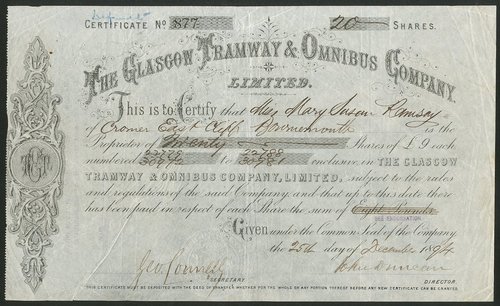 CERTIFICATE No 877 20 SHARES.
THE GLASGOW TRAMWAY & OMNIBUS COMPANY,
LIMITED.
This is to Certify that Mrs Mary Susan Ramsay
of Cromer East Cliff Bournemouth is the
Proprietor of Twenty Shares of £9 each
numbered to inclusive, in THE GLASGOW
TRAMWAY & OMNIBUS COMPANY, LIMITED, subject to the rules
and regulations of the said Company and that up to this date there
has been paid in respect of each Share the sum of Eight Pounds
SEE ENDORSATION
Given under the Common Seal of the Company
the 25th day of December 1894
Geo. Connell John Duncan
SECRETARY DIRECTOR
THIS CERTIFICATE MUST BE DEPOSITED WITH THE DEED OF TRANSFER WHETHER FOR THE WHOLE OR ANY PORTION THEREOF BEFORE ANY NEW CERTIFICATE CAN BE GRANTED.